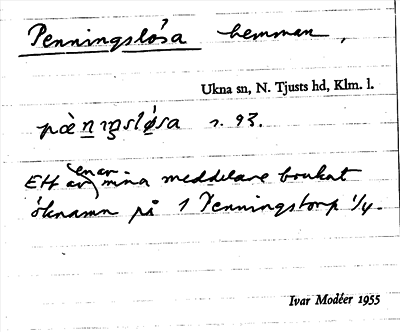 Penningslösa hemman,
Ukna sn, N. Tjusts hd, Klm. l.
pæ̀nıŋsløsa s. 93.
en av
Ett av mina meddelare brukat
öknamn på 1 Penningstorp 1/4.
Ivar Modéer 1955